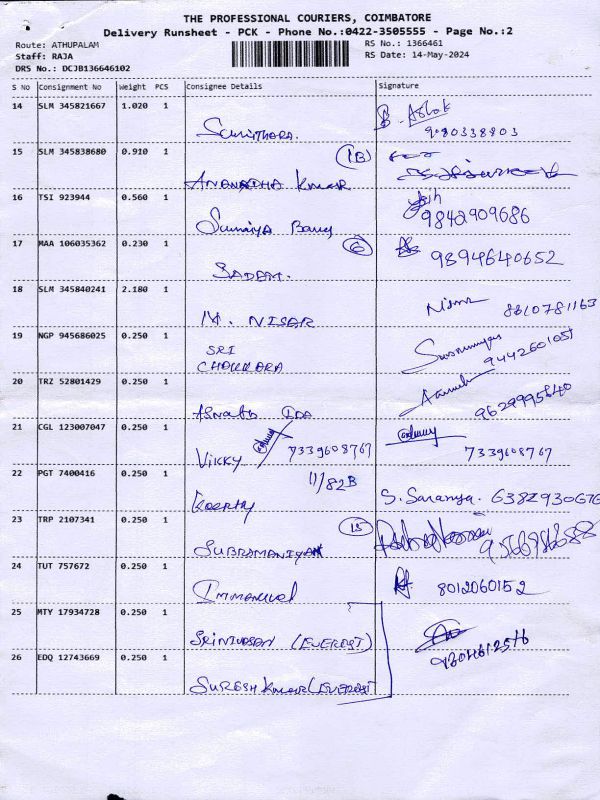 THE PROFESSIONAL COURIERS, COIMBATORE
Delivery Runsheet - PCK - Phone No.:0422-3505555 - Page No.:2
Route: ATHUPALAM
Staff: RAJA
DRS No.: DCJB136646102
RS No.: 1366461
RS Date: 14-May-2024
S No Consignment No Weight PCS Consignee Details Signature
14 SLM 345821667 1.020 1
B. Ashok
9080338803
15 SLM 345838680 0.910 1 (1B)
Kumar
16 TSI 923944 0.560 1
Sumaiya Banu 9842909686
17 MAA 106035362 0.230 1 (6)
SADAM. 9894640652
18 SLM 345840241 2.180 1
M. NISAR 8810781163
19 NGP 945686025 0.250 1
SRI
9442601051
20 TRZ 52801429 0.250 1
9629995840
21 CGL 123007047 0.250 1
VIKKY 7339608767 7339608767
22 PGT 7400416 0.250 1 11/82B
S. Saranya. 6382930676
23 TRP 2107341 0.250 1 (15)
SUBRAMANIYAN
24 TUT 757672 0.250 1
Immanuel 8012060152
25 MTY 17934728 0.250 1
SRINIVASAN (EVEREST)
26 EDQ 12743669 0.250 1
SURESH Kumar (EVEREST)